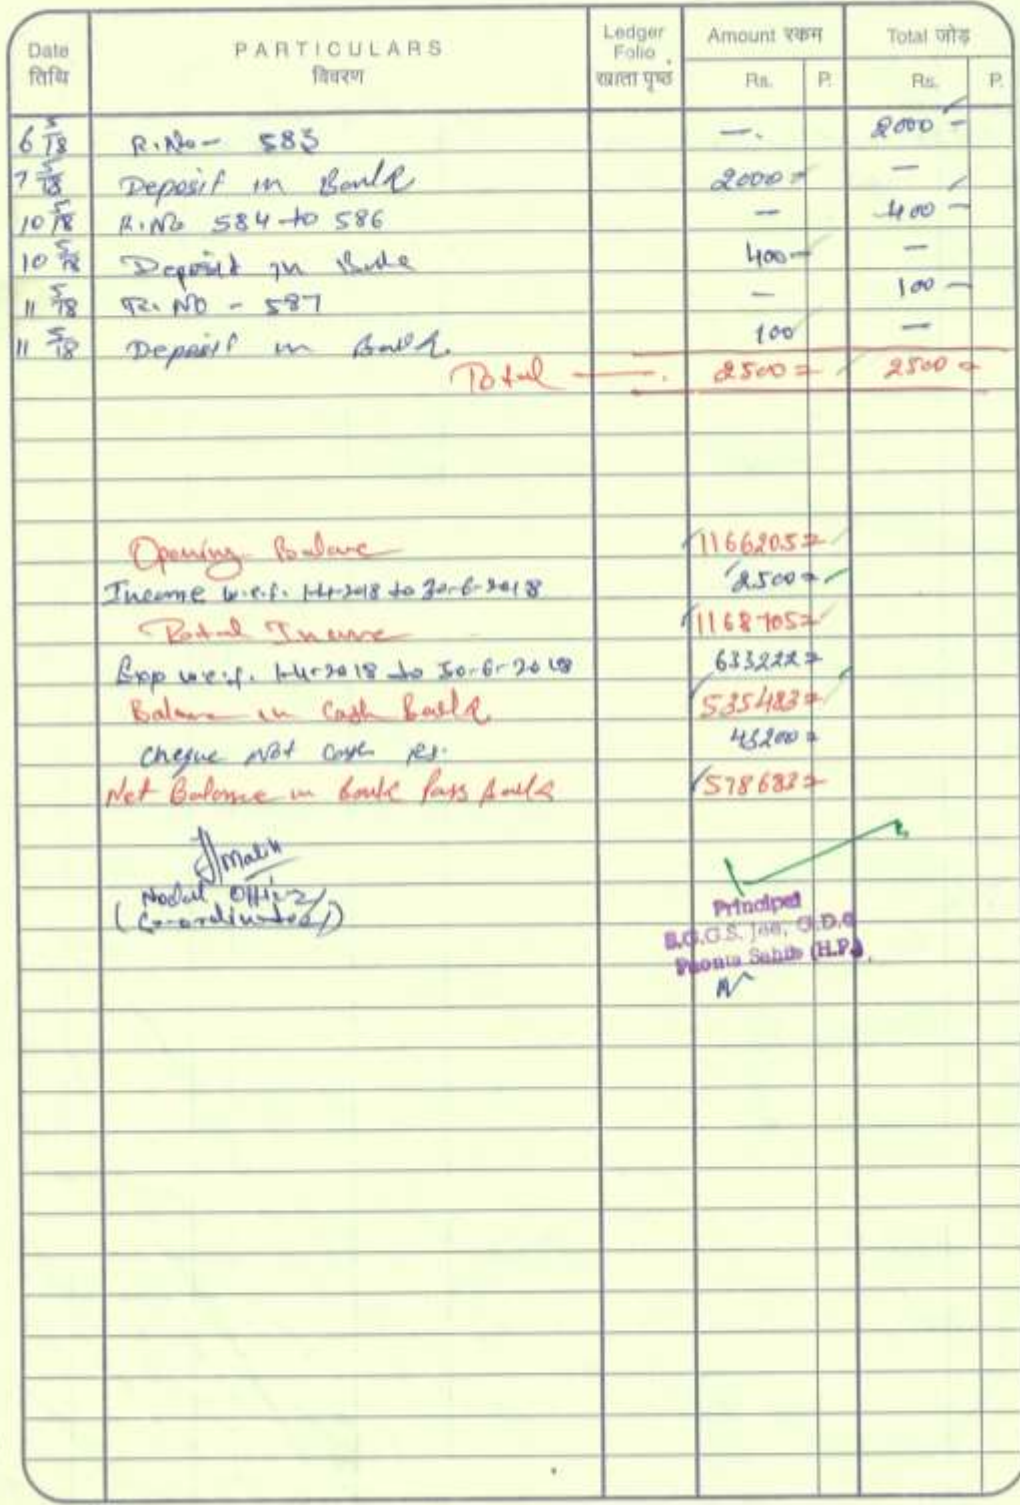 Date PARTICULARS Ledger Folio Amount रकम Total जोड़
तिथि विवरण खाता पृष्ठ Rs. P. Rs. P.
6 5/18 R.No - 583 —. 2000 -
7 5/18 Deposit in Bank 2000 = —
10 5/18 R.No 584 to 586 — 400 -
10 5/18 Deposit in Bank 400 - —
11 5/18 R. NO - 587 — 100 -
11 5/18 Deposit in Bank. 100 —
Total —. 2500 = 2500 =
Opening Balance 1166205 =
Income w.e.f. 1-4-2018 to 30-6-2018 2500 =
Total Income 1168705 =
Exp w.e.f. 1-4-2018 to 30-6-2018 633222 =
Balance in Cash Book 535483 =
Cheque Not Cash Rs. 43200 =
Net Balance in bank Pass Book 578683 =
Malik
Nodal Officer/
(Co-ordinator)
Principal
S.G.G.S. Jee, G.D.C
Paonta Sahib (H.P.)